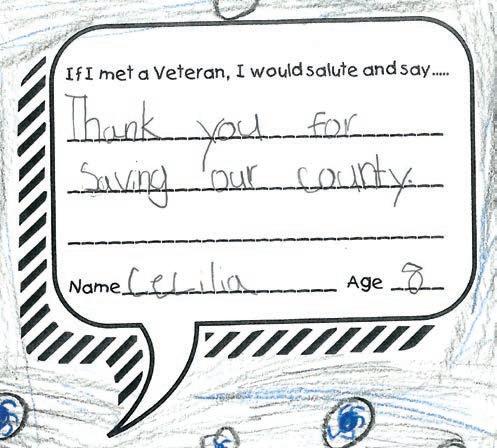 If I met a Veteran, I would salute and say.....
Thank you for
Saving our county.
Name Cecilia Age 8